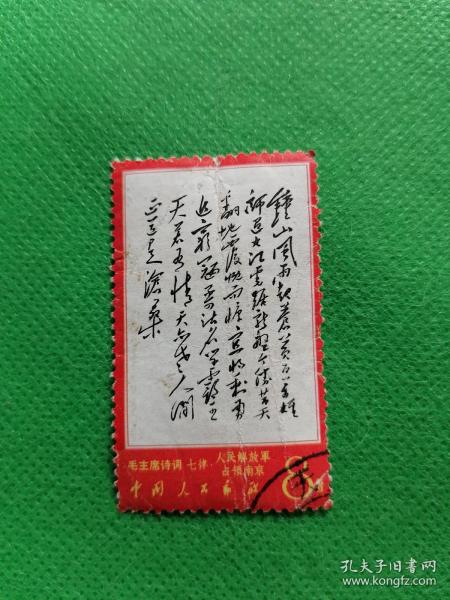 鍾山風雨起蒼黃百万雄
師過大江虎踞龍盤今勝昔天
翻地覆慨而慷宜將剩勇
追窮寇不可沽名學霸王
天若有情天亦老人間
正道是滄桑
毛主席诗词 七律·人民解放軍
占領南京
中国人民邮政
8分
孔夫子旧书网
www.kongfz.com